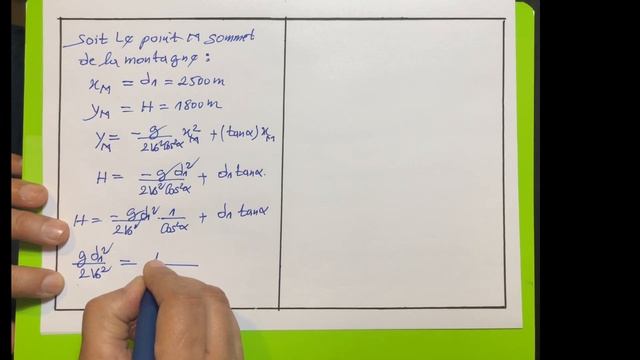 Soit Le point M sommet
de la montagne :
x_M = d₁ = 2500m
y_M = H = 1800m
y_M = -g/(2V₀²Cos²α) x_M² + (tanα) x_M
H = -g d₁²/(2V₀²Cos²α) + d₁ tanα.
H = -g d₁²/(2V₀²) · 1/Cos²α + d₁ tanα
g d₁²/(2V₀²) =